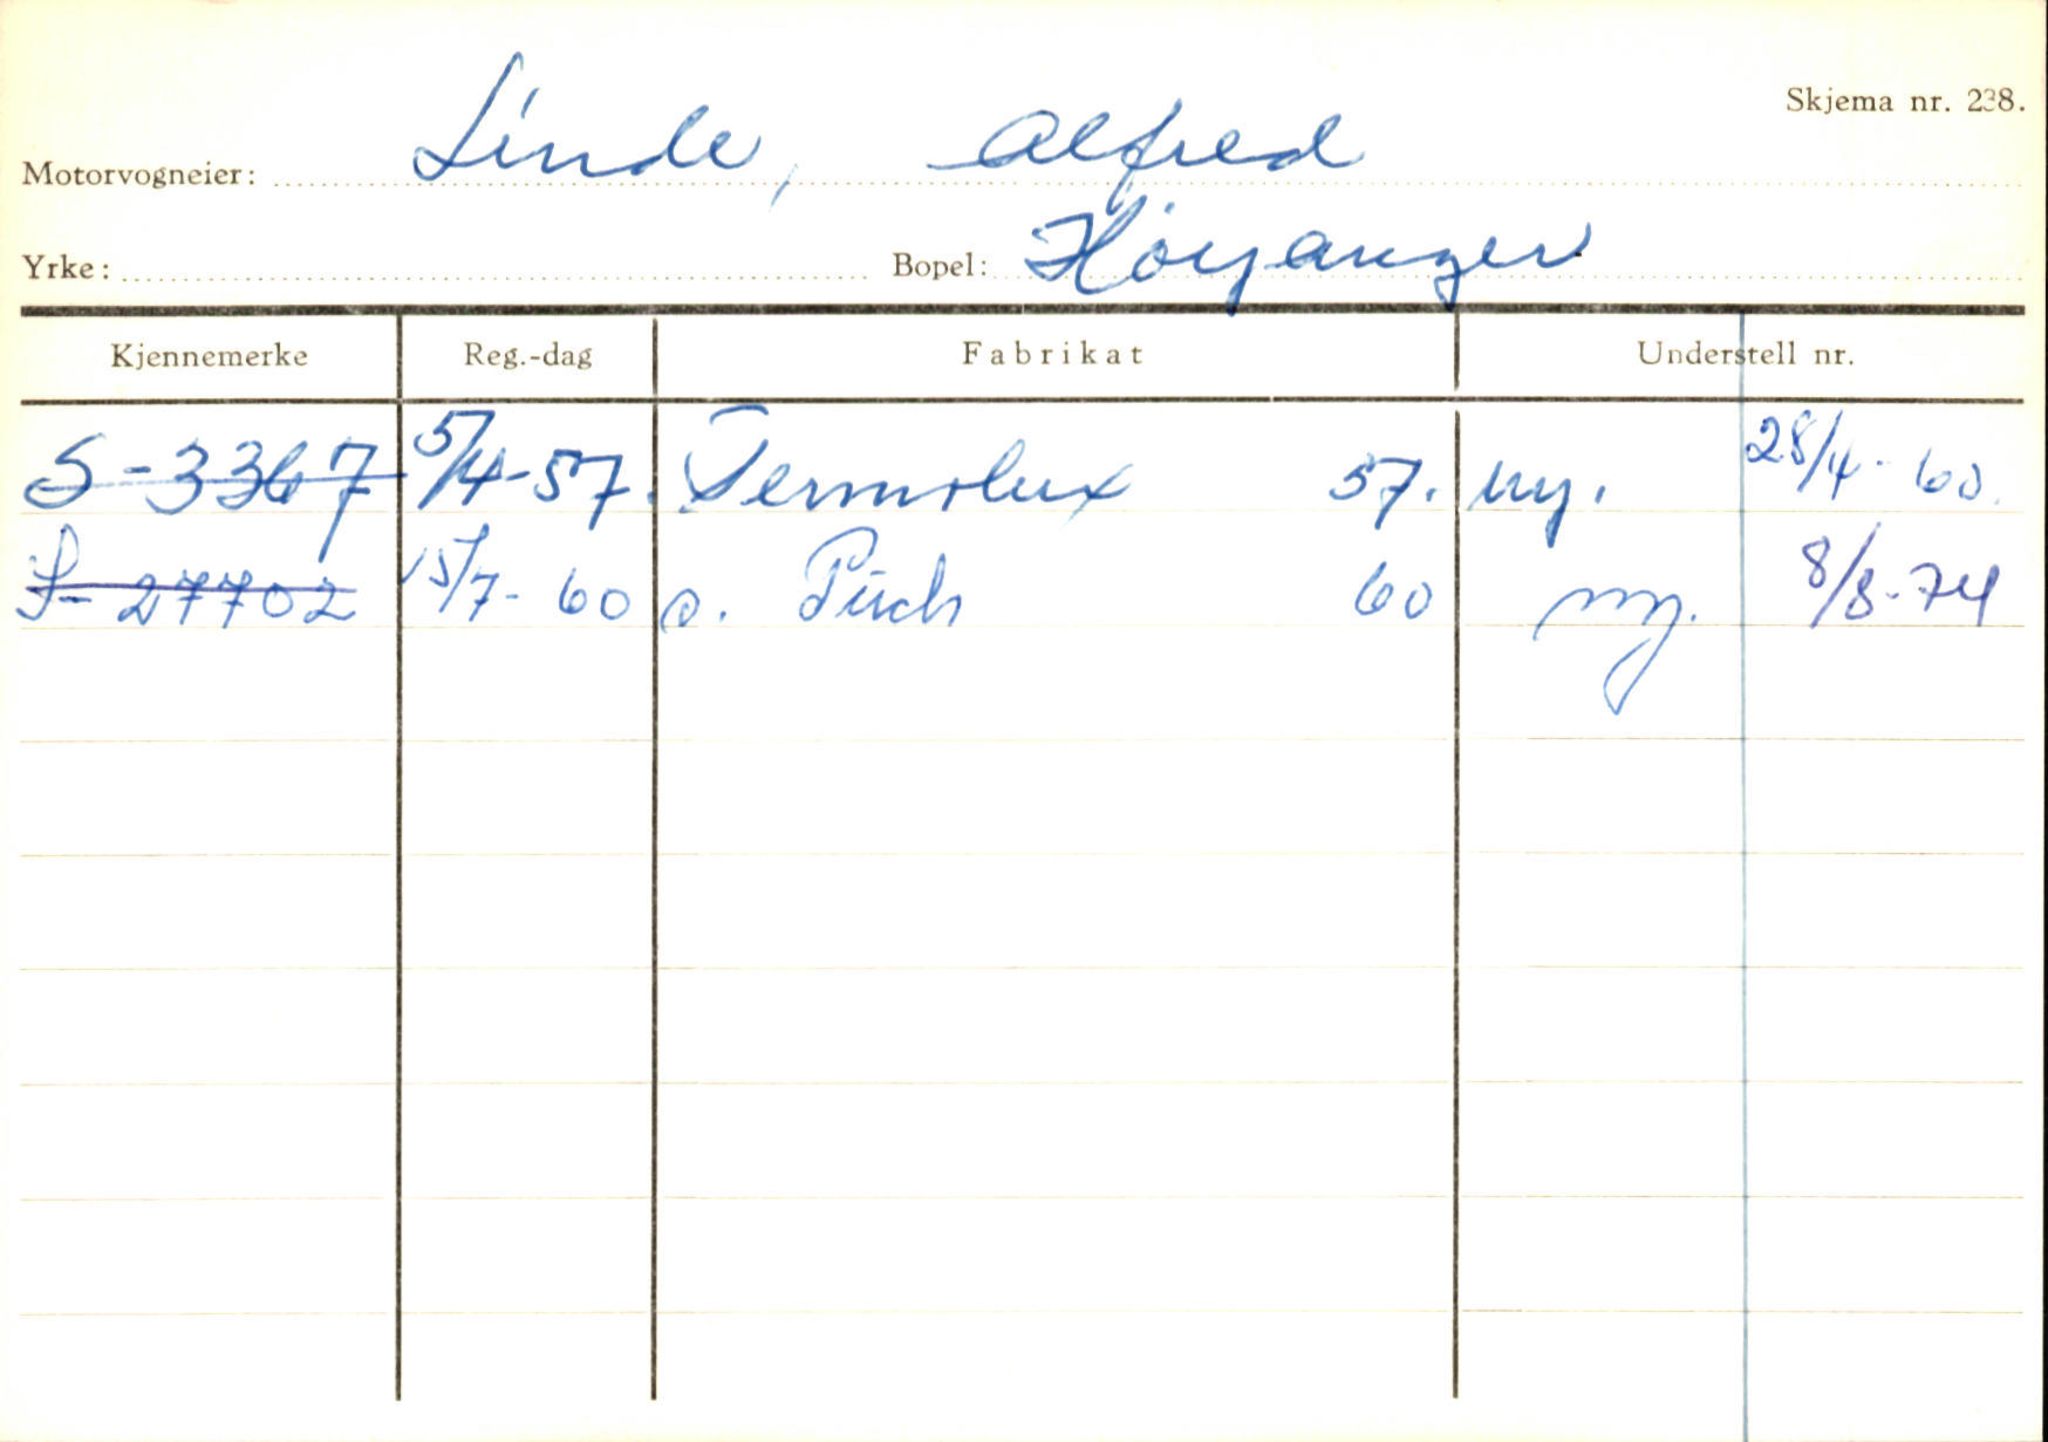 Skjema nr. 238.
Motorvogneier: Linde, Alfred
Yrke: Bopel: Höyanger
Kjennemerke Reg.-dag Fabrikat Understell nr.
S-3367 5/4-57. Termolux 57. ny. 28/4-60.
S-27702 15/7-60 o. Puch 60 ny. 8/8-74